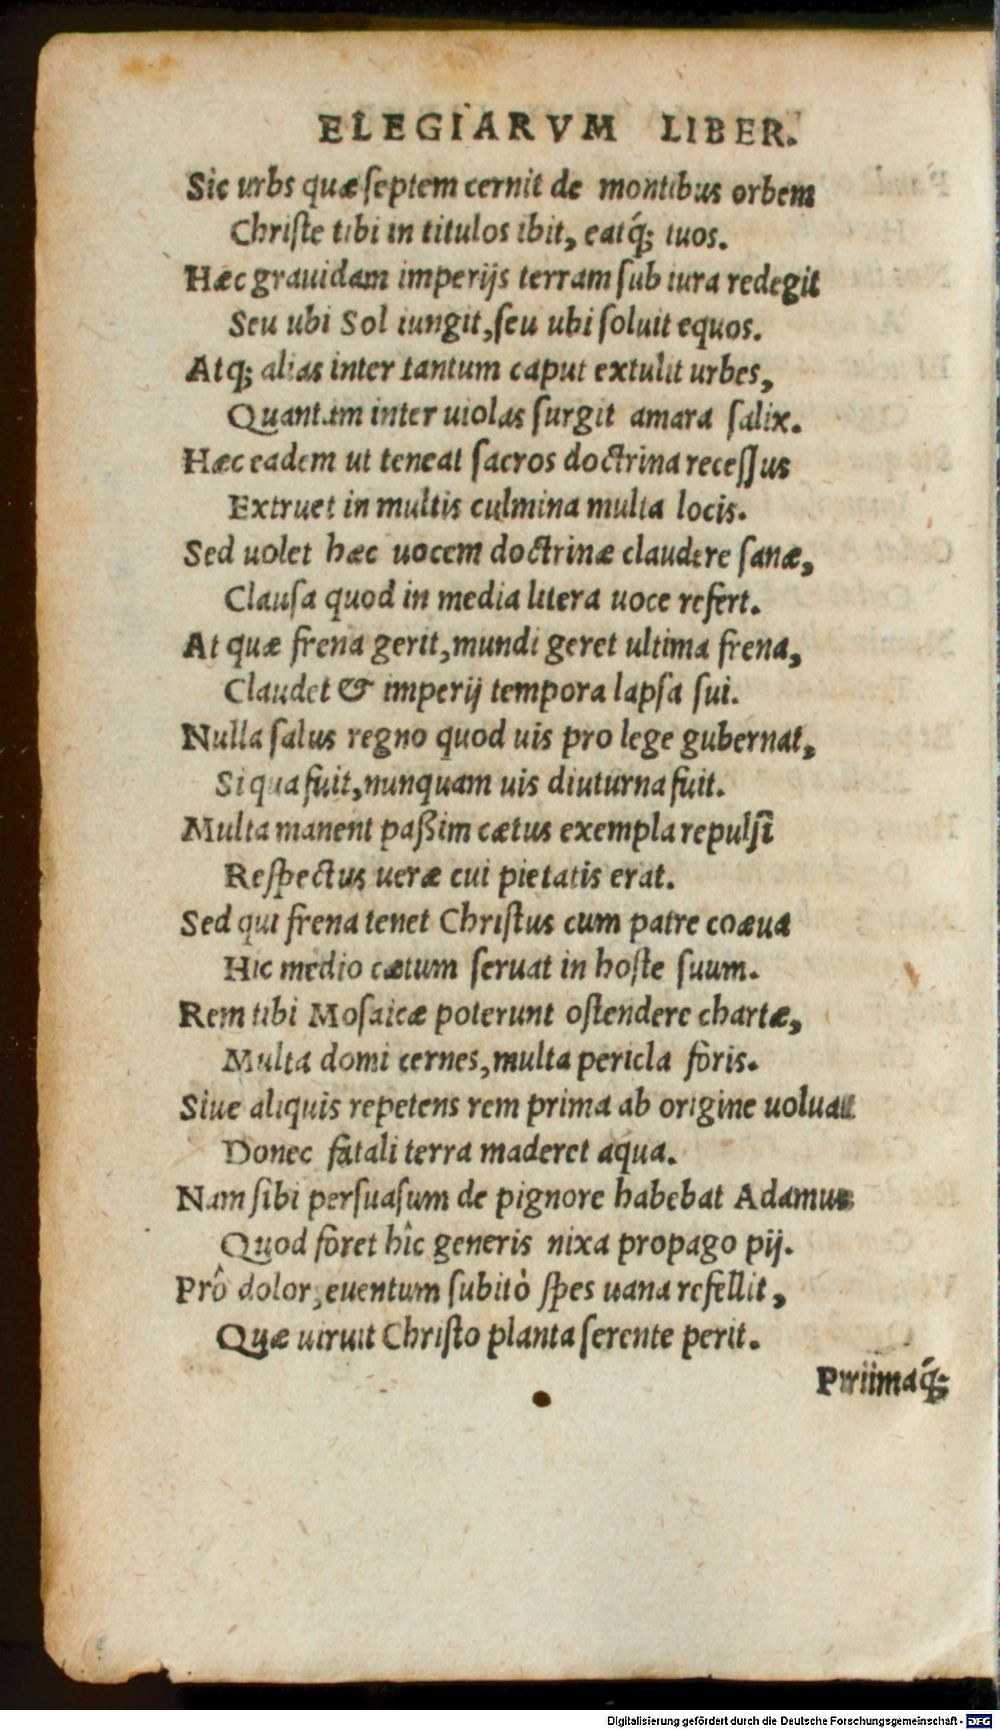 ELEGIARVM LIBER.
Sic urbs quæ ſeptem cernit de montibus orbem
Chriſte tibi in titulos ibit, eatq́; tuos.
Hæc grauidam imperijs terram ſub iura redegit
Seu ubi Sol iungit, ſeu ubi ſoluit equos.
Atq; alias inter tantum caput extulit urbes,
Quantum inter uiolas ſurgit amara ſalix.
Hæc eadem ut teneat ſacros doctrina receſſus
Extruet in multis culmina multa locis.
Sed uolet hæc uocem doctrinæ claudere ſanæ,
Clauſa quod in media litera uoce refert.
At quæ frena gerit, mundi geret ultima frena,
Claudet & imperij tempora lapſa ſui.
Nulla ſalus regno quod uis pro lege gubernat,
Si qua fuit, nunquam uis diuturna fuit.
Multa manent paßim cætus exempla repulſi
Reſpectus ueræ cui pietatis erat.
Sed qui frena tenet Chriſtus cum patre coæua
Hic medio cætum ſeruat in hoſte ſuum.
Rem tibi Moſaicæ poterunt oſtendere chartæ,
Multa domi cernes, multa pericla foris.
Siue aliquis repetens rem prima ab origine uoluat
Donec fatali terra maderet aqua.
Nam ſibi perſuaſum de pignore habebat Adamus
Quod foret hîc generis nixa propago pij.
Prô dolor, euentum ſubitò ſpes uana refellit,
Quæ uiruit Chriſto planta ſerente perit.
Primaq́;
Digitalisierung gefördert durch die Deutsche Forschungsgemeinschaft - DFG